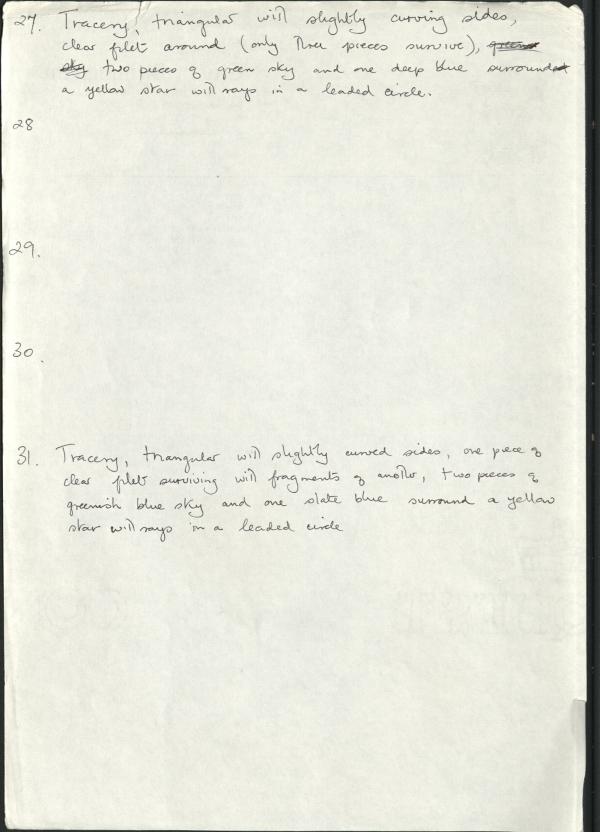 27. Tracery, triangular with slightly curving sides,
clear filet around (only three pieces survive), green
sky two pieces of green sky and one deep blue surround
a yellow star with rays in a leaded circle.
28
29.
30.
31. Tracery, triangular with slightly curved sides, one piece of
clear filet surviving with fragments of another, two pieces of
greenish blue sky and one slate blue surround a yellow
star with rays in a leaded circle